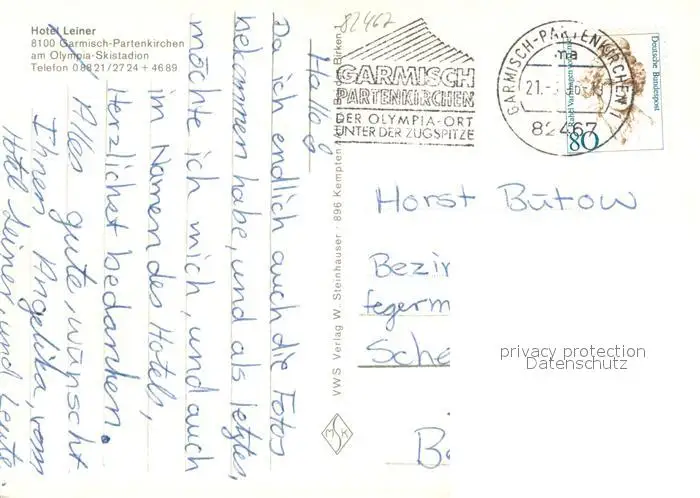 Hotel Leiner
8100 Garmisch-Partenkirchen
am Olympia-Skistadion
Telefon 08821/2724 + 4689
82467
Hallo
Da ich endlich auch die Fotos
bekommen habe, und als letztes,
möchte ich mich, und auch
im Namen des Hotels,
Herzlichst bedanken.
Alles gute, wünscht
Ihnen Angelika, vom
Hotel Leiner, und Leute
VWS Verlag W. Steinhauser · 896 Kempten
MSK
GARMISCH
PARTENKIRCHEN
DER OLYMPIA-ORT
UNTER DER ZUGSPITZE
GARMISCH-PARTENKIRCHEN 1
ma
21.
82467
Deutsche Bundespost
Rahel Varnhagen von Ense
80
Horst Bütow
Bezir
fegerm
Sche
privacy protection
Datenschutz